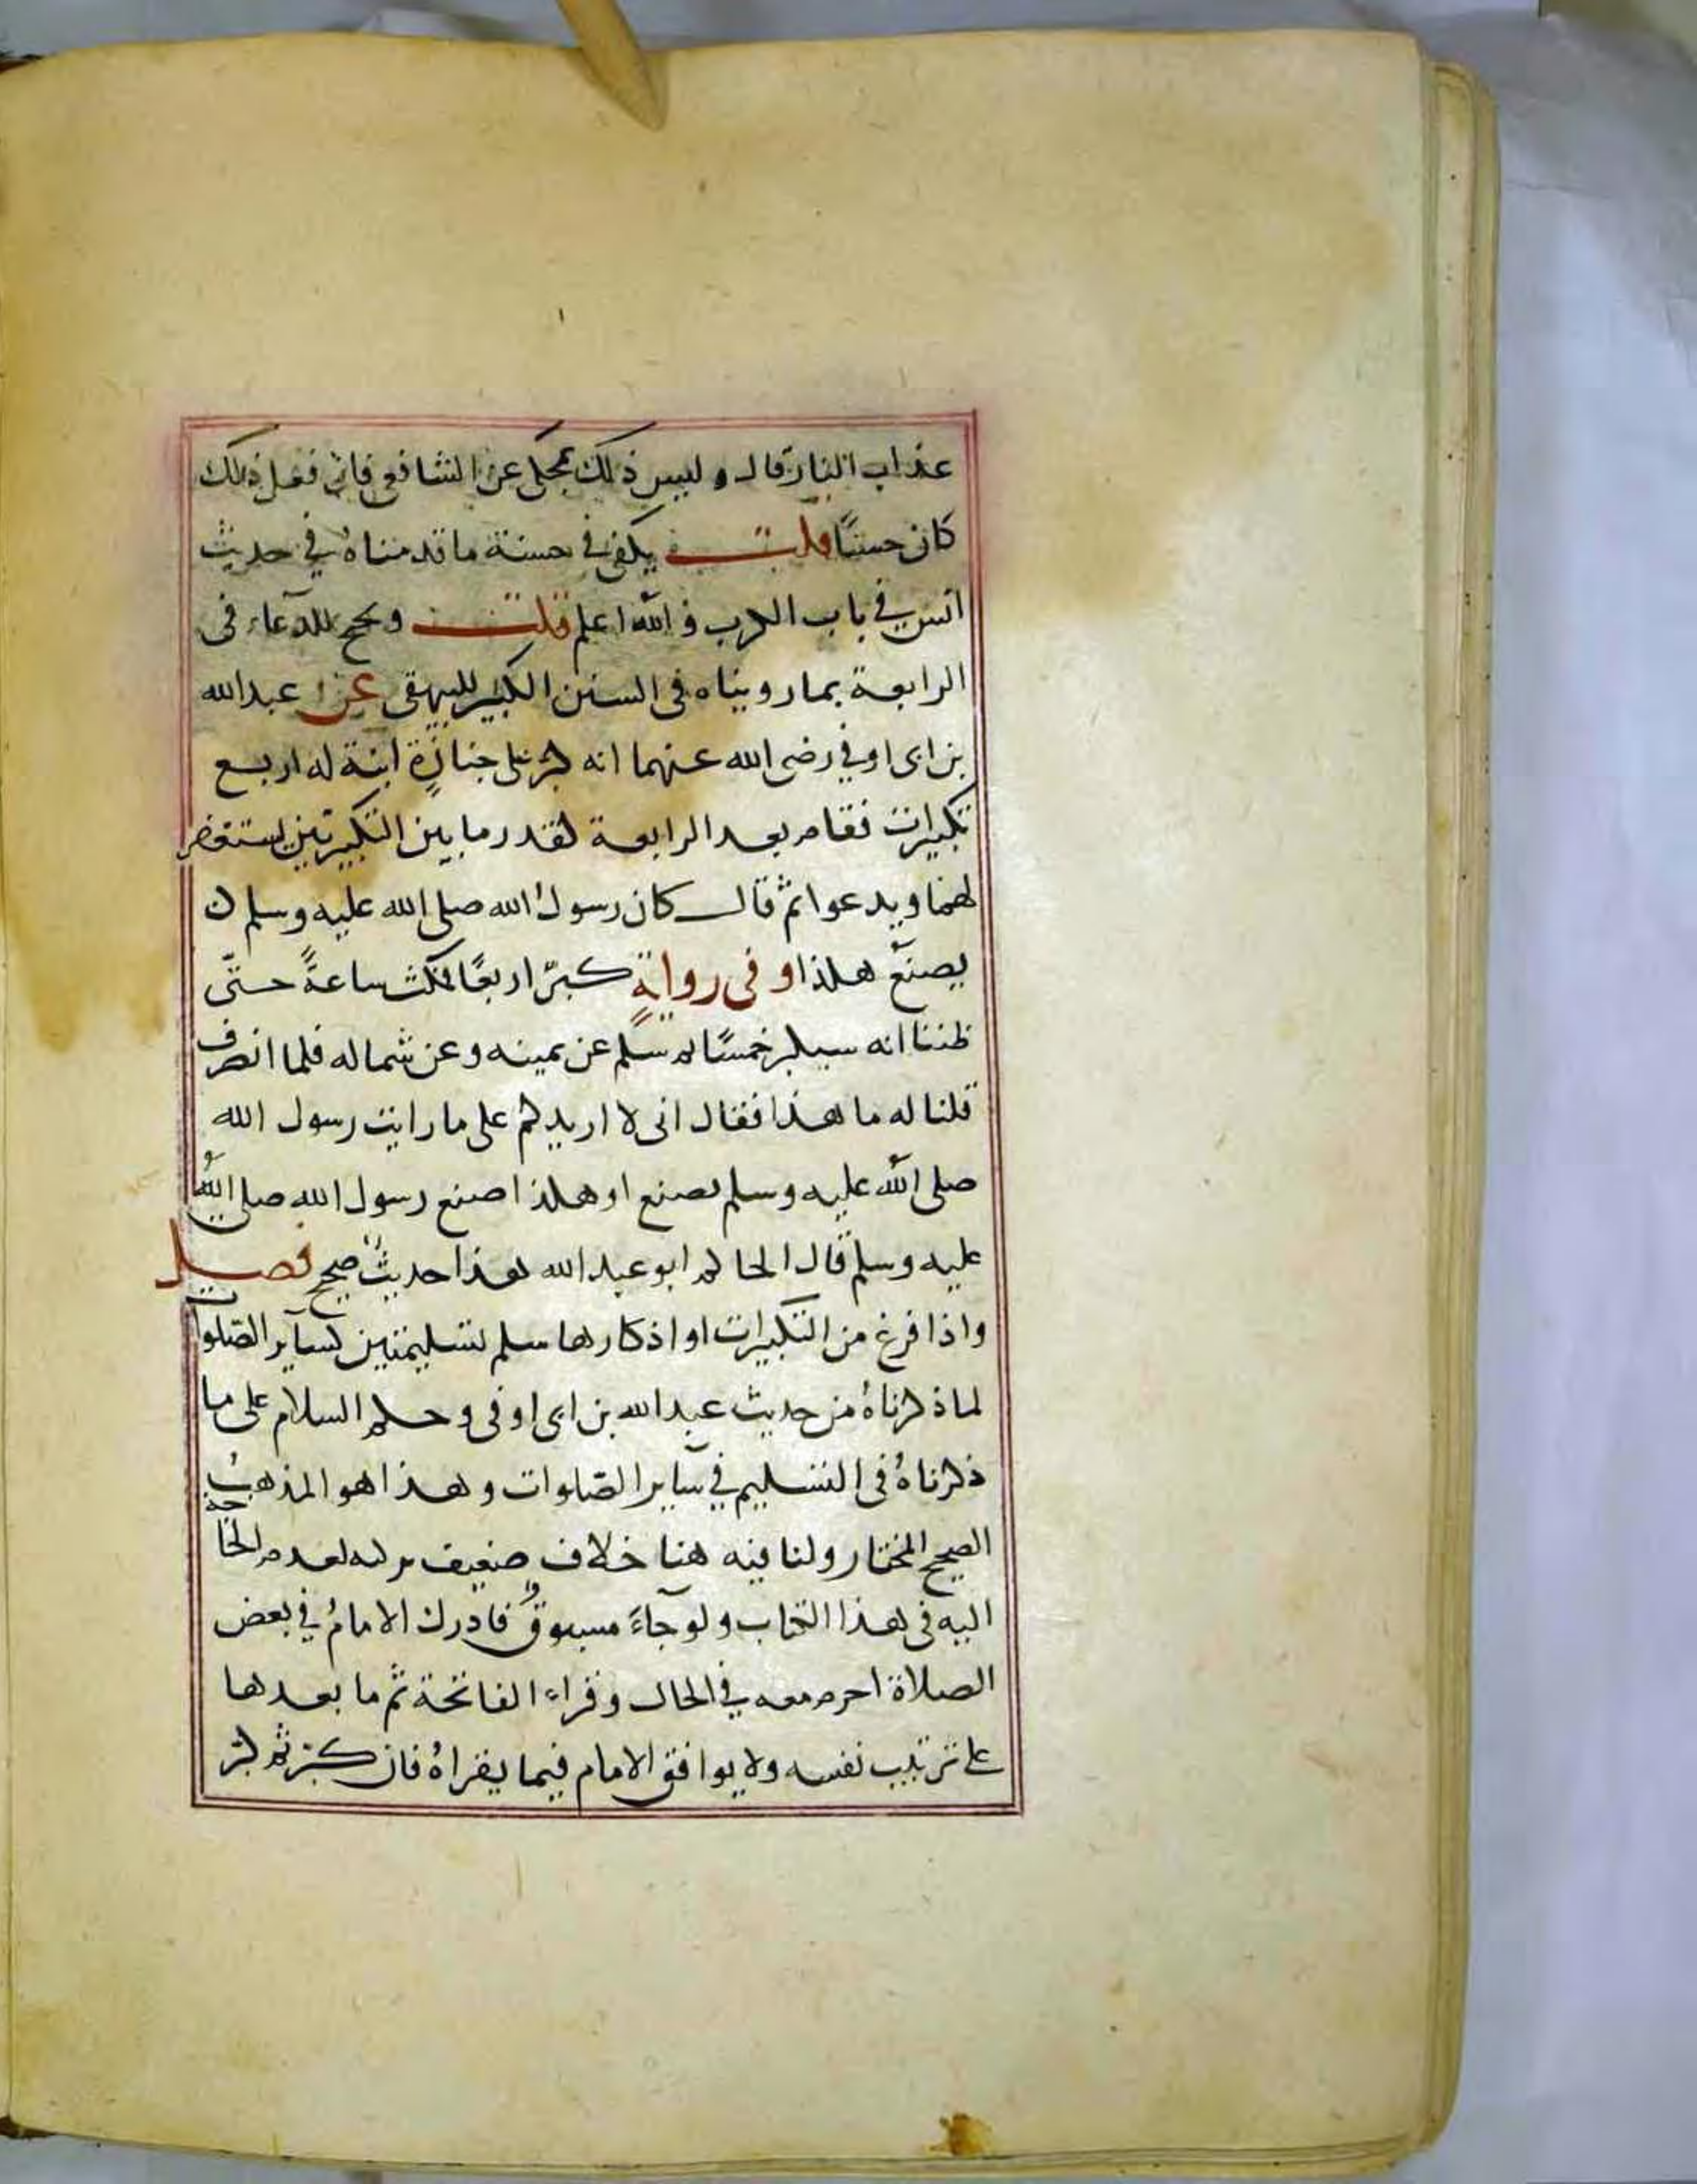 عذاب النار قال وليس ذلك بمحكى عن الشافعى فان فعل ذلك
كان حسنًا قلت يكفى فى حسنة ما قدمناهُ في حديث
انس في باب الكرب والله اعلم قلت ويحتج للدعاء فى
الرابعة بما رويناه فى السنن الكبير للبيهقى عن عبدالله
بن ابى اوفي رضى الله عنهما انه كبر على جنازة ابنة له اربع
تكبيرات فقام بعد الرابعة كقدر ما بين التكبيرتين يستغفر
لهما ويدعوا ثم قال كان رسول الله صلى الله عليه وسلم
يصنع هكذا وفى رواية كبّر اربعًا فمكث ساعةً حتّى
ظننا انه سيكبر خمسًا ثم سلّم عن يمينه وعن شماله فلما انصرف
قلنا له ما هذا فقال انى لا ازيدكم على ما رايت رسول الله
صلى الله عليه وسلم يصنع او هكذا صنع رسول الله صلى الله
عليه وسلم قال الحاكم ابو عبدالله هذا حديث صحيح فصل
واذا فرغ من التكبيرات او اذكارها سلم تسليمتين كساير الصّلوات
لما ذكرناهُ من حديث عبدالله بن ابى اوفى وحكم السلام على ما
ذكرناهُ فى التسليم في ساير الصّلوات وهذا هو المذهب
الصحيح المختار ولنا فيه هنا خلاف ضعيف تركته لعدم الحاجة
اليه فى هذا الكتاب ولو جاءَ مسبوقٌ فادرك الامامُ في بعض
الصلاة احرم معه في الحال وقراء الفاتحة ثم ما بعدها
على ترتيب نفسه ولا يوافق الامام فيما يقراهُ فان كبّر ثم كبّر